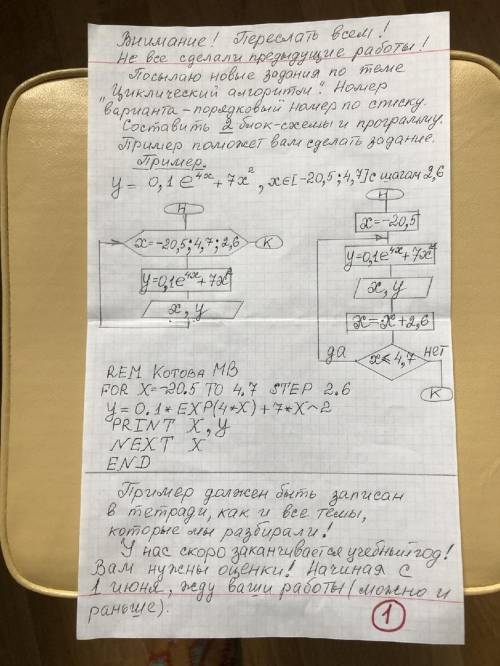 Внимание! Переслать всем!
Не все сделали предыдущие работы!
Посылаю новые задания по теме
"Циклический алгоритм". Номер
варианта - порядковый номер по списку.
Составить 2 блок-схемы и программу.
Пример поможет вам сделать задание.
Пример.
y = 0,1e^4x + 7x^2, x∈[-20,5; 4,7] с шагом 2,6
Н
x=-20,5; 4,7; 2,6
К
y=0,1e^4x+7x^2
x, y
Н
x=-20,5
y=0,1e^4x+7x^2
x, y
x=x+2,6
да
x≤4,7
нет
К
REM Котова МВ
FOR X=-20.5 TO 4.7 STEP 2.6
y=0.1*EXP(4*X)+7*X^2
PRINT X, y
NEXT X
END
Пример должен быть записан
в тетради, как и все темы,
которые мы разбирали!
У нас скоро заканчивается учебный год!
Вам нужны оценки! Начиная с
1 июня, жду ваши работы (можно и
раньше).
1